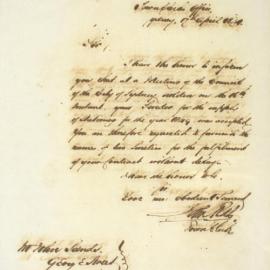 Town Clerks Office
Sydney, 17th April 1849
Sir,
I have the honor to inform
you that at a Meeting of the Council
of the City of Sydney holden on the 16th
Instant, your Tender for the supply
of Stationery for the year 1849, was accepted
You are therefore requested to forward the
names of two Sureties for the fulfilment
of your Contract without delay
I have the honor &c
Your most Obedient Servant
Town Clerk
Mr John Sands
George Street